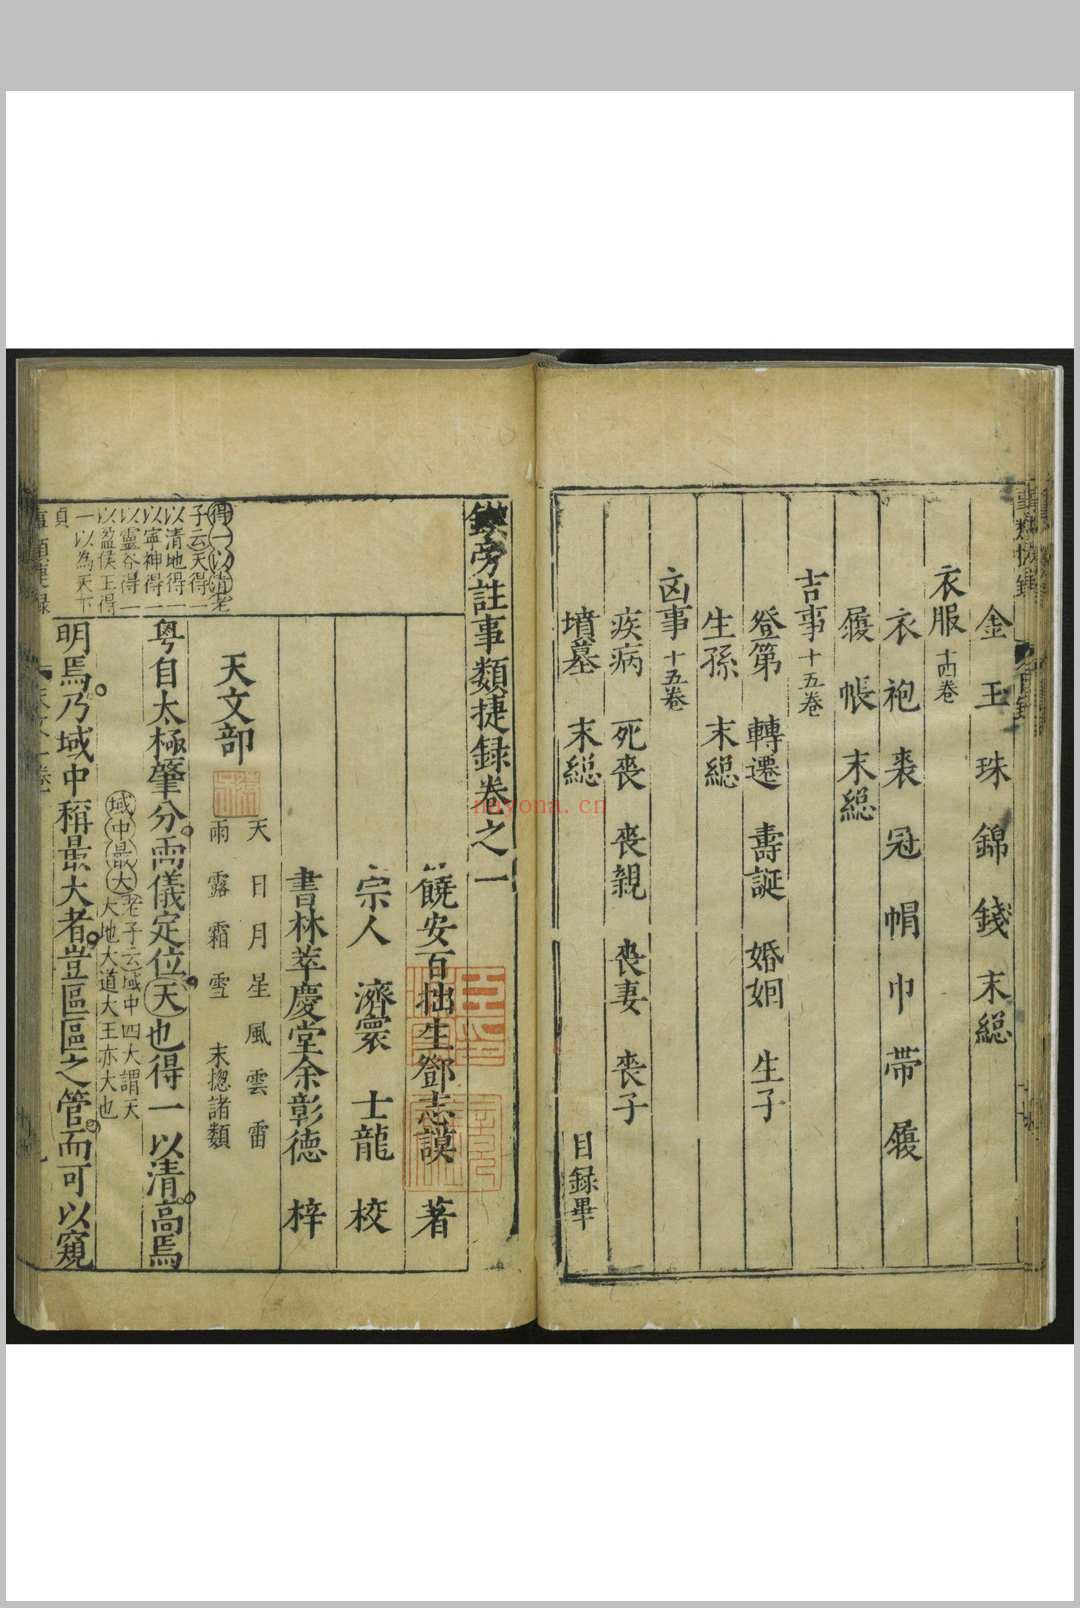 金 玉 珠 錦 錢 末緫
衣服 十四卷
衣 袍 裘 冠 帽 巾 帶 履
履 帳 末緫
吉事 十五卷
登第 轉遷 壽誕 婚姻 生子
生孫 末緫
凶事 十五卷
疾病 死喪 喪親 喪妻 喪子
墳墓 末緫
目録畢
旁註事類捷録卷之一
饒安百拙生鄧志謨 著
宗人 濟寰 士龍 校
書林萃慶堂余彰德 梓
天文部
天 日 月 星 風 雲 雷
雨 露 霜 雪 末揔諸類
得一以清老
子云天得一
以清地得一
以寧神得一
以靈谷得一
以盈侯王得
一以為天下
貞
粤自太極肇分两儀定位天也得一以清高焉
域中最大老子云域中四大謂天
大地大道大王亦大也
明焉乃域中稱最大者豈區區之管而可以窺
nuyona.cn